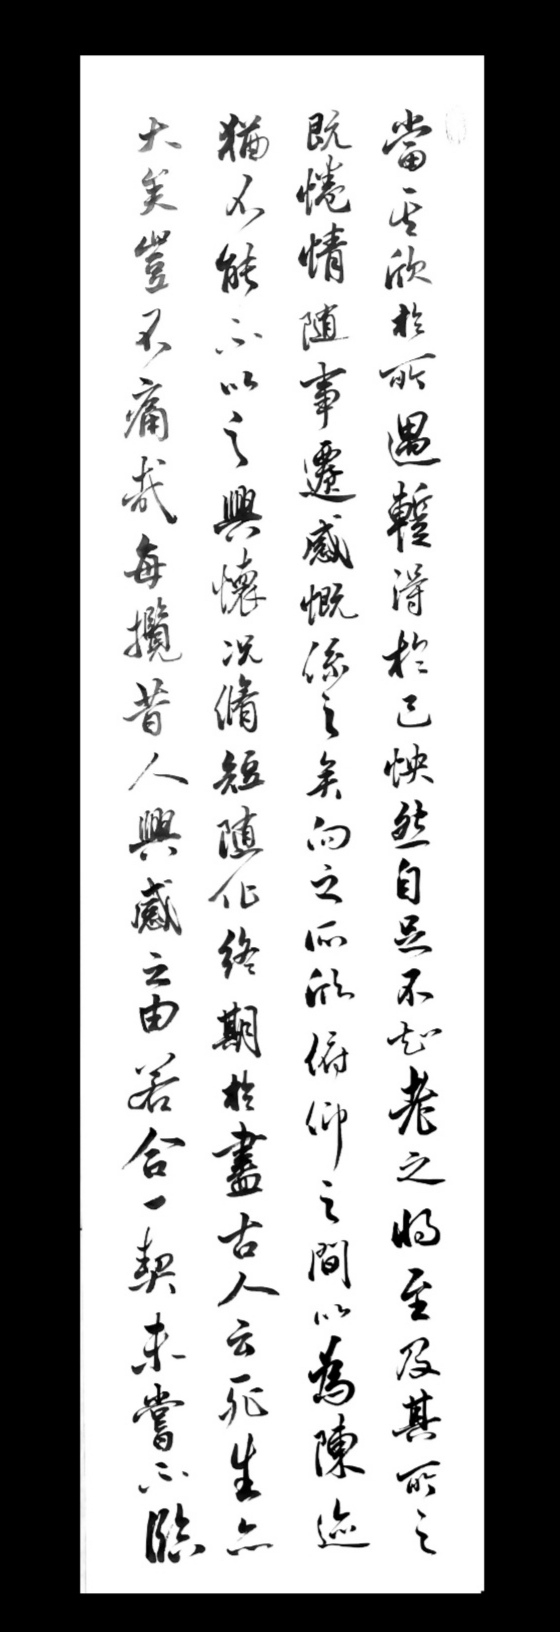 當其欣於所遇暫得於己怏然自足不知老之將至及其所之
既惓情隨事遷感慨係之矣向之所欣俛仰之間以為陳迹
猶不能不以之興懷况脩短隨化終期於盡古人云死生亦
大矣豈不痛哉每攬昔人興感之由若合一契未嘗不臨